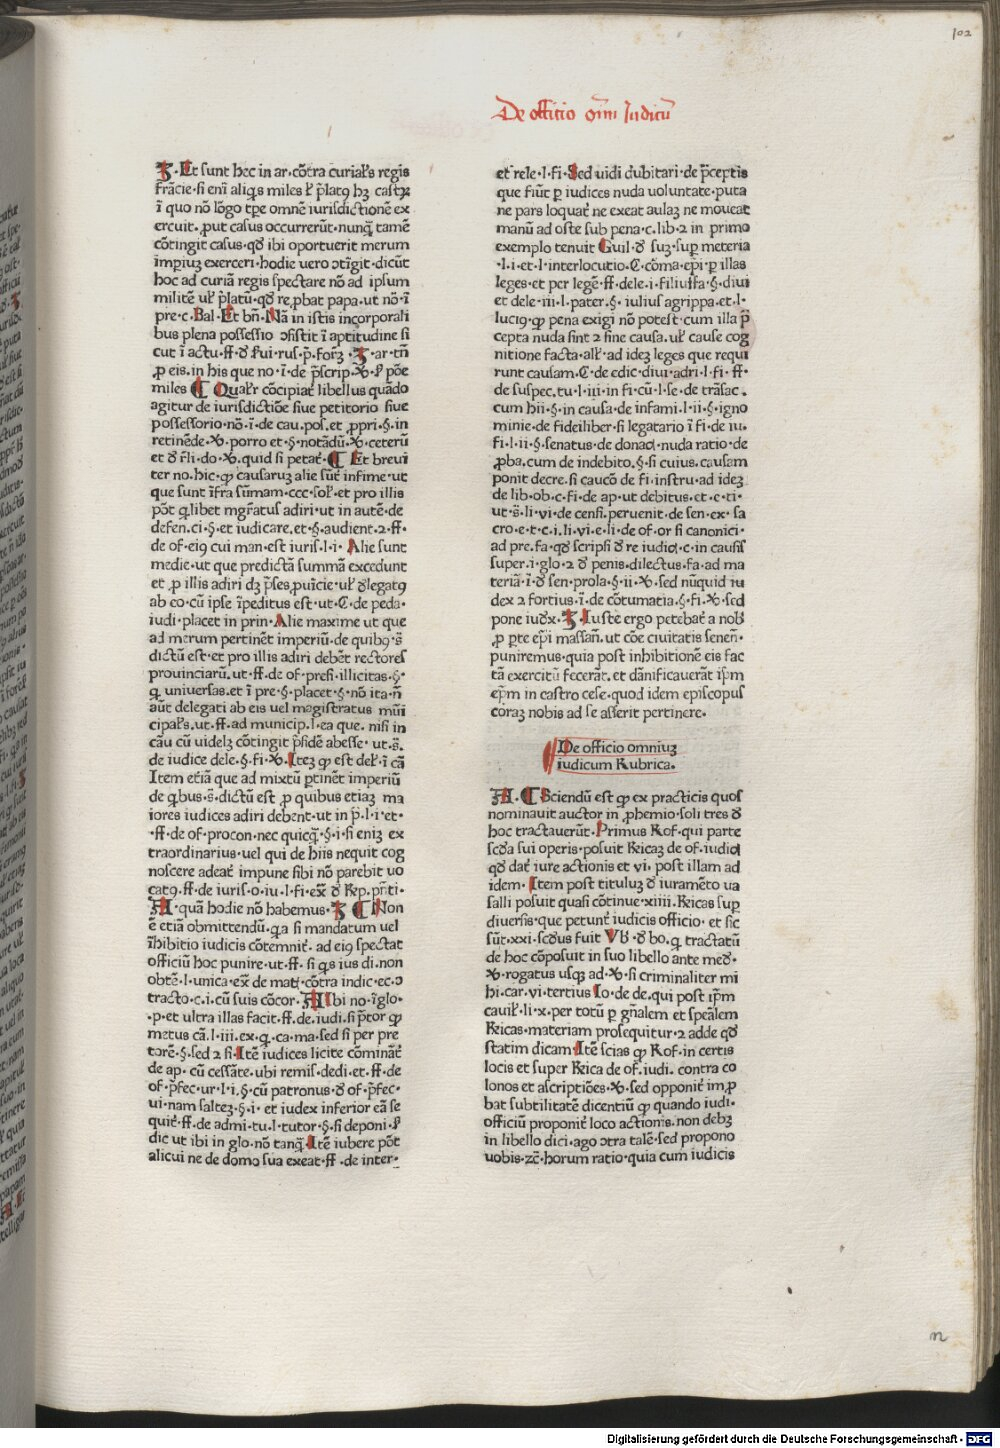 102
De officio oīm Iudicū
Et sunt hec in ar. cōtra curiales regis
frācie. si eni aliqs miles ł p̄latꝰ hꝫ castꝝ
ī quo nō lōgo tꝑe omnē iurisdictionē ex
ercuit. ꝓut casus occurrerūt. nunq̄ tamē
cōtingit casus. qď ibi oportuerit merum
imꝑiuꝫ exerceri. hodie vero ↄtīgit. dicūt
hoc ad curiā regis spectare nō ad ipsum
militē uł p̄latū. qď reꝓbat papa. ut nō. ī
pre. c. Bal. Et bn̄. Nā in istis incorporali
bus plena possessio ↄsistit ī aptitudine si
cut ī actu. ff. ď ẜui. rus. p̄. forꝫ. ar. tn̄
ꝓ eis. in his que no. ī. de p̄scrip. ꝟ. ẜ pōe
miles ¶ Qualr cōcipiat᷑ libellus quādo
agitur de iurisdictiōe siue petitorio siue
possessorio. nō. ī. de cau. pos. et ꝓpri. §. in
retinēde. ꝟ. porro et. §. notādū. ꝟ. ceterū
et ď fłi. do. ꝟ. quid si petat᷑. ¶ Et breui
ter no. hic. ꝙ causaruꝫ alie sūt infime. ut
que sunt īfra sūmam. ccc. soł. et pro illis
pōt ꝗlibet mgr̄atus adiri. ut in autē. de
defen. ci. §. et iudicare. et. §. audient. 2. ff.
de of. eiꝰ cui man. est iuris. l. i. Alie sunt
medie. ut que predictā summā excedunt
et ꝓ illis adiri dꝫ p̄ses ꝓuīcie. uł ďlegatꝰ
ab eo. cū ipse īpeditus est. ut. C. de peda.
iudi. placet in prin. Alie maxime ut que
ad merum pertinēt imperiū. de quibꝰ. s̄
dictū est. et pro illis adiri debēt rectores
provinciarū. ut. ff. de of. presi. illicitas. §.
ꝗ universas. et ī pre. §. placet. §. nō ita. n̄
aūt delegati ab eis vel magistratus mūi
cipałs. ut. ff. ad municip. l. ea que. nisi in
cāu cū uidelꝫ cōtingit p̄sidē abesse. ut. s̄.
de iudice dele. §. fi. ꝟ. Iteꝫ ꝙ est deł. ī cā
Item etiā que ad mixtū ꝑtinēt imperiū
de ꝗbus. s̄. dictū est ꝓ quibus etiaꝫ ma
iores iudices adiri debent. ut in p̄. l. i. et.
ff. de of. procon. nec quicq̄. §. i. si eniꝫ ex
traordinarius. uel qui de hiis nequit cog
noscere adeat᷑ impune sibi nō parebit uo
catꝰ. ff. de iuris. o. iu. l. fi. ex̄ ď Rep. pn̄ti.
quā hodie nō habemus. ¶ Non
ē etiā obmittendū. ꝗa si mandatum uel
īhibitio iudicis cōtemnit᷑. ad eiꝰ spectat
officiū hoc punire. ut. ff. si ꝗs ius di. non
obtē. l. unica. ex̄ de mat᷑. cōtra indic. ec. ↄ
tracto. c. i. cū suis cōcor. Ubi no. īglo.
p. et ultra illas facit. ff. de. iudi. si p̄tor ꝙ
metus cā. l. iii. ex. ꝗ. ca. ma. sed si per pre
torē. §. sed 2 si. Itē iudices licite cōmināt᷑
de ap. cū cessāte. ubi remis. dedi. et. ff. de
of. p̄fec. ur. l. i. §. cū patronus. ď of. p̄fec.
ui. nam salteꝫ. §. i. et iudex inferior eā se
quit᷑. ff. de admi. tu. l. tutor. §. si deponi. ẜ
dic ut ibi in glo. nō tanq̄. Itē iubere pōt
alicui ne de domo sua exeat. ff. de inter.
et rele. l. fi. Sed uidi dubitari. de p̄ceptis
que fiūt ꝑ iudices nuda uoluntate. puta
ne pars loquat᷑ ne exeat aulaꝫ ne moueat
manū ad oste sub pena. c. lib. 2 in primo
exemplo tenuit Guil. ď suꝫ. suꝑ meteria
l. i. et. l. interlocutio. C. cōma. ep̄i. ꝑ illas
leges. et per legē. ff. dele. i. filiusfa. §. diui
et dele. iii. l. pater. §. iulius agrippa. et. l.
luciꝰ. ꝙ pena exigi nō potest. cum illa p̄
cepta nuda sint 2 sine causa. uł cause cog
nitione facta. ałr. ad ideꝫ leges que requi
runt causam. C. de edic. diui. adri. l. fi. ff.
de suspec. tu. l. iii. in fi. cū. l. se. de trāsac.
cum hii. §. in causa. de infami. l. ii. §. igno
minie. de fideiliber. si legatario ī fi. de iu.
fi. l. ii. §. senatus. de donac. nuda ratio. de
ꝓba. cum de indebito. §. si cuius. causam
ponit decre. si caucō de fi. instru. ad ideꝫ
de lib. ob. c. fi. de ap. ut debitus. et. c. ti.
ut. s̄. li. vi. de censi. peruenit. de sen. ex. sa
cro. e. t. c. i. li. vi. e. li. de of. or si canonici.
ad pre. fa. qď scripsi ď re iudic. c. in causis
super. ī. glo. 2 ď penis. dilectus. fa. ad ma
teriā. ī. ď sen. prola. §. ii. ꝟ. sed nūquid iu
dex 2 fortius. ī. de cōtumatia. §. fi. ꝟ. sed
pone iudx. Iuste ergo petebat᷑ a nob̄
ꝓ ꝑte ep̄i massan̄. ut cōe ciuitatis senen̄.
puniremus. quia post inhibitionē eis fac
tā exercitū fecerāt. et dānificauerāt ip̄m
ep̄m in castro cese. quod idem episcopus
coraꝫ nobis ad se asserit pertinere.
De officio omniuꝫ
iudicum Rubrica.
¶ Sciendū est ꝙ ex practicis quos
nominauit auctor in ꝓhemio. soli tres ď
hoc tractauerūt. Primus Rof. qui parte
scďa sui operis. posuit Reicaꝫ de of. iudic
qď dat᷑ iure actionis et vi. post illam ad
idem. Item post tituluꝫ ď iuramēto ca
salli posuit quasi cōtinue. xiiii. Reicas suꝑ
diuersis. que petunt᷑ iudicis officio. et sic
sūt. xxi. scďus fuit Vb̄. ď bo. ꝗ tractatū
de hoc cōposuit in suo libello ante med̄.
ꝟ. rogatus usqꝫ ad. ꝟ. si criminaliter mi
hi. car. vi. tertius Io. de de. qui post ip̄m
cauił. li. x. per totū ꝑ gn̄alem et speālem
Reicas. materiam prosequitur. 2 adde qď
statim dicam. Itē scias ꝙ Rof. in certis
locis et super Reica de of. iudi. contra co
lonos et ascriptiōes. ꝟ. sed opponit᷑ imꝓ
bat subtilitatē dicentiū ꝙ quando iudi.
officiū proponit᷑ loco actionis. non debꝫ
in libello dici. ago ↄtra talē. sed propono
uobis. zc̄. horum ratio. quia cum iudicis
n
Digitalisierung gefördert durch die Deutsche Forschungsgemeinschaft - DFG